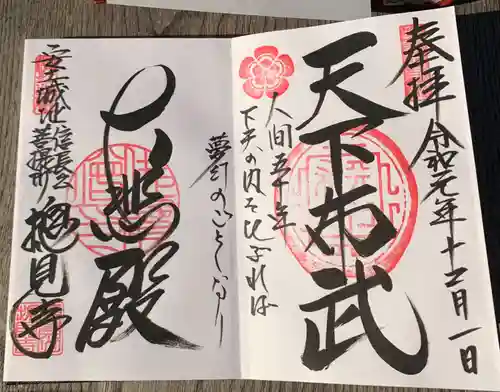 奉拝
令和元年十二月一日
天下布武
人間五十年
下天の内をくらぶれば
夢幻のごとくなり
大悲殿
安土城址
信長公
菩提所
摠見寺